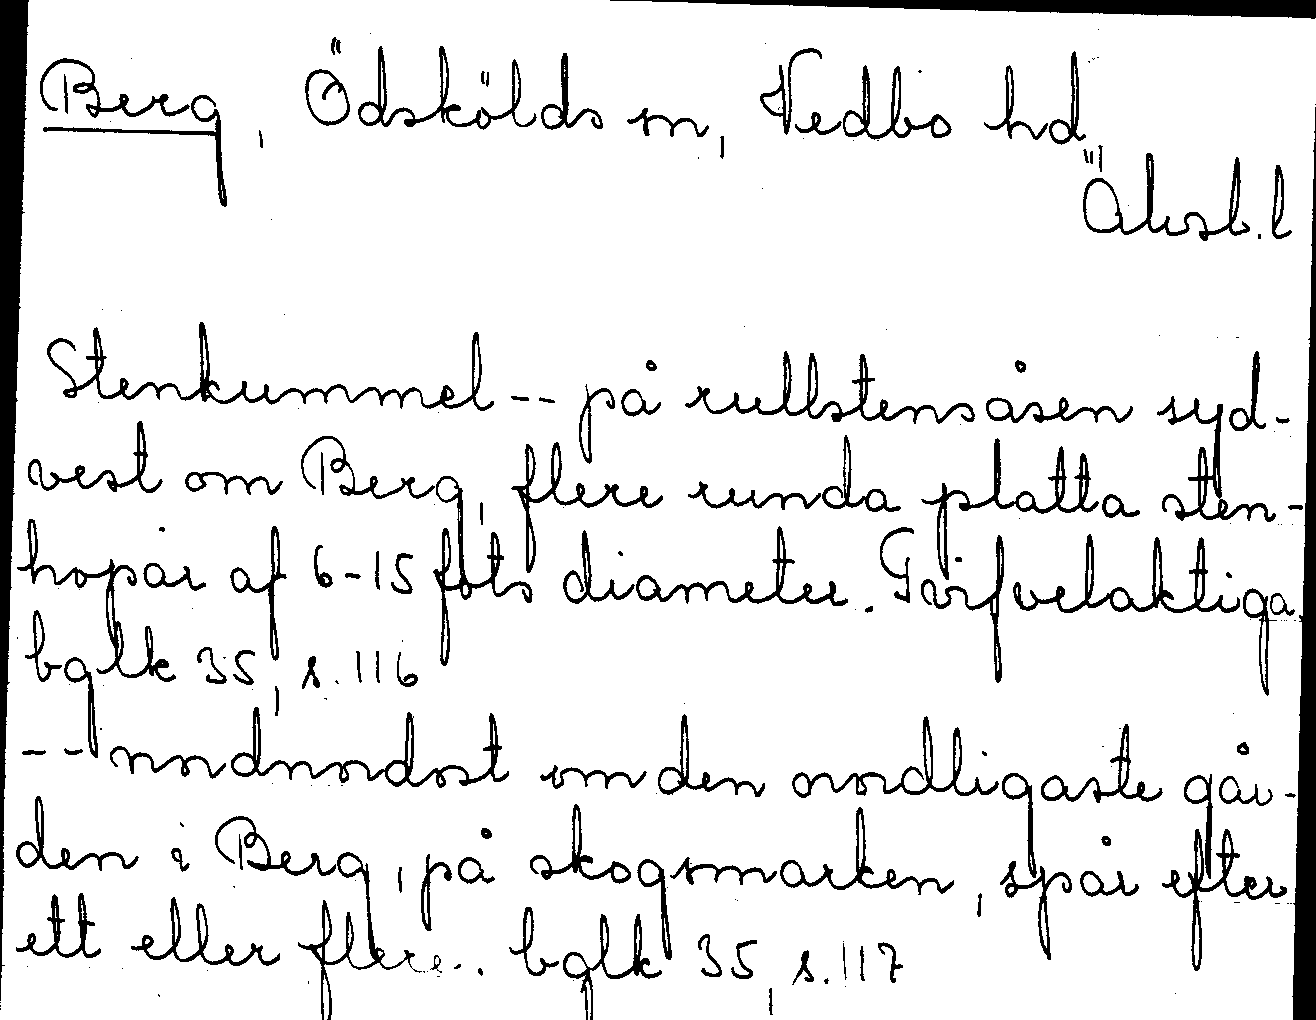 Berg, Ödskölds sn, Vedbo hd,
Älvsb.l
Stenkummel -- på rullstensåsen syd-
vest om Berg, flere runda platta sten-
hopar af 6-15 fots diameter. Görfvelaktiga.
bglk 35, s. 116
-- nordnordost om den nordligaste går-
den i Berg, på skogsmarken, spår efter
ett eller flere. bglk 35, s. 117